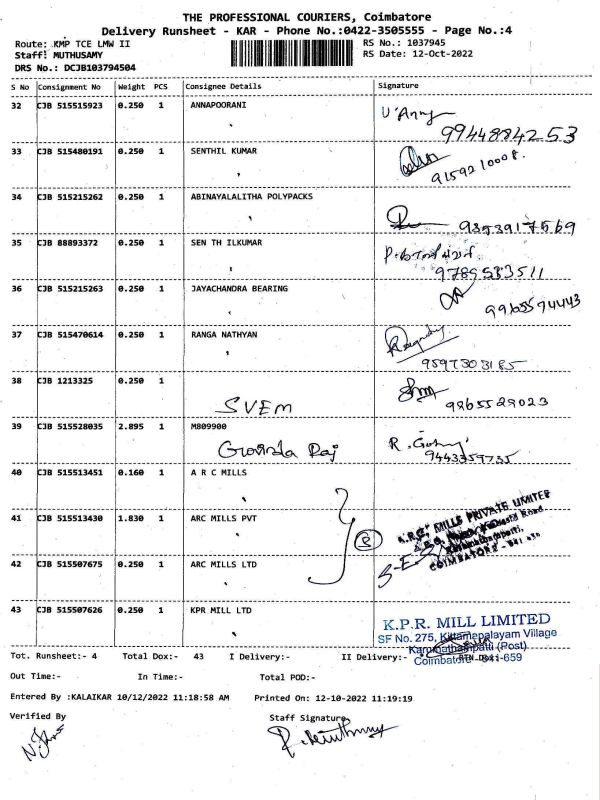 THE PROFESSIONAL COURIERS, Coimbatore
Delivery Runsheet - KAR - Phone No.:0422-3505555 - Page No.:4
Route: KMP TCE LMW II
RS No.: 1037945
Staff: MUTHUSAMY
RS Date: 12-Oct-2022
DRS No.: DCJB103794504
S No Consignment No Weight PCS Consignee Details Signature
32 CJB 515515923 0.250 1 ANNAPOORANI
9944884253
33 CJB 515480191 0.250 1 SENTHIL KUMAR
9159210008.
34 CJB 515215262 0.250 1 ABINAYALALITHA POLYPACKS
9353917569
35 CJB 88893372 0.250 1 SEN TH ILKUMAR
9789533511
36 CJB 515215263 0.250 1 JAYACHANDRA BEARING
9965594443
37 CJB 515470614 0.250 1 RANGA NATHYAN
9597303185
38 CJB 1213325 0.250 1
SVEM
9965529023
39 CJB 515528035 2.895 1 M809900
Govinda Raj
9443359735
40 CJB 515513451 0.160 1 A R C MILLS
41 CJB 515513430 1.830 1 ARC MILLS PVT
MILLS PRIVATE LIMITED
COIMBATORE
42 CJB 515507675 0.250 1 ARC MILLS LTD
43 CJB 515507626 0.250 1 KPR MILL LTD
K.P.R. MILL LIMITED
SF No. 275, Kittampalayam Village
Karumathampatti (Post)
Coimbatore - 641-659
Tot. Runsheet:- 4 Total Dox:- 43 I Delivery:- II Delivery:-
Out Time:- In Time:- Total POD:-
Entered By :KALAIKAR 10/12/2022 11:18:58 AM Printed On: 12-10-2022 11:19:19
Verified By Staff Signature